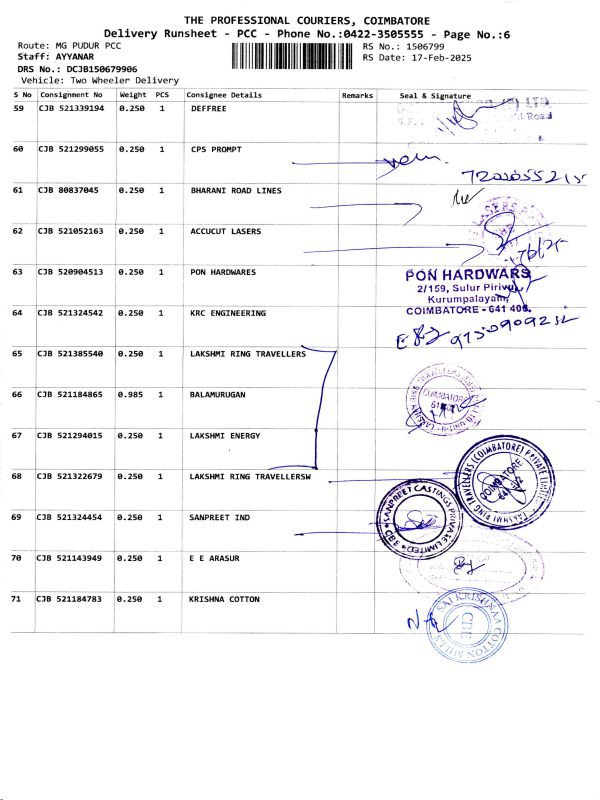 THE PROFESSIONAL COURIERS, COIMBATORE
Delivery Runsheet - PCC - Phone No.:0422-3505555 - Page No.:6
Route: MG PUDUR PCC RS No.: 1506799
Staff: AYYANAR RS Date: 17-Feb-2025
DRS No.: DCJB150679906
Vehicle: Two Wheeler Delivery
S No Consignment No Weight PCS Consignee Details Remarks Seal & Signature
59 CJB 521339194 0.250 1 DEFFREE
60 CJB 521299055 0.250 1 CPS PROMPT
61 CJB 80837045 0.250 1 BHARANI ROAD LINES
62 CJB 521052163 0.250 1 ACCUCUT LASERS
63 CJB 520904513 0.250 1 PON HARDWARES
PON HARDWARS
2/159, Sulur Pirivu,
Kurumpalayam,
COIMBATORE - 641 406.
64 CJB 521324542 0.250 1 KRC ENGINEERING
65 CJB 521385540 0.250 1 LAKSHMI RING TRAVELLERS
66 CJB 521184865 0.985 1 BALAMURUGAN
67 CJB 521294015 0.250 1 LAKSHMI ENERGY
68 CJB 521322679 0.250 1 LAKSHMI RING TRAVELLERSW
LAKSHMI RING TRAVELLERS (COIMBATORE) PRIVATE LIMITED
COIMBATORE
69 CJB 521324454 0.250 1 SANPREET IND
SANPREET CASTINGS PRIVATE LIMITED
CBE
70 CJB 521143949 0.250 1 E E ARASUR
71 CJB 521184783 0.250 1 KRISHNA COTTON
SAI KRISHNAA COTTON MILLS
CBE